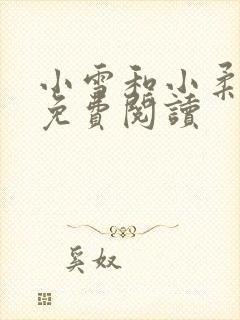 小雪和小柔
免費閱讀
奚奴